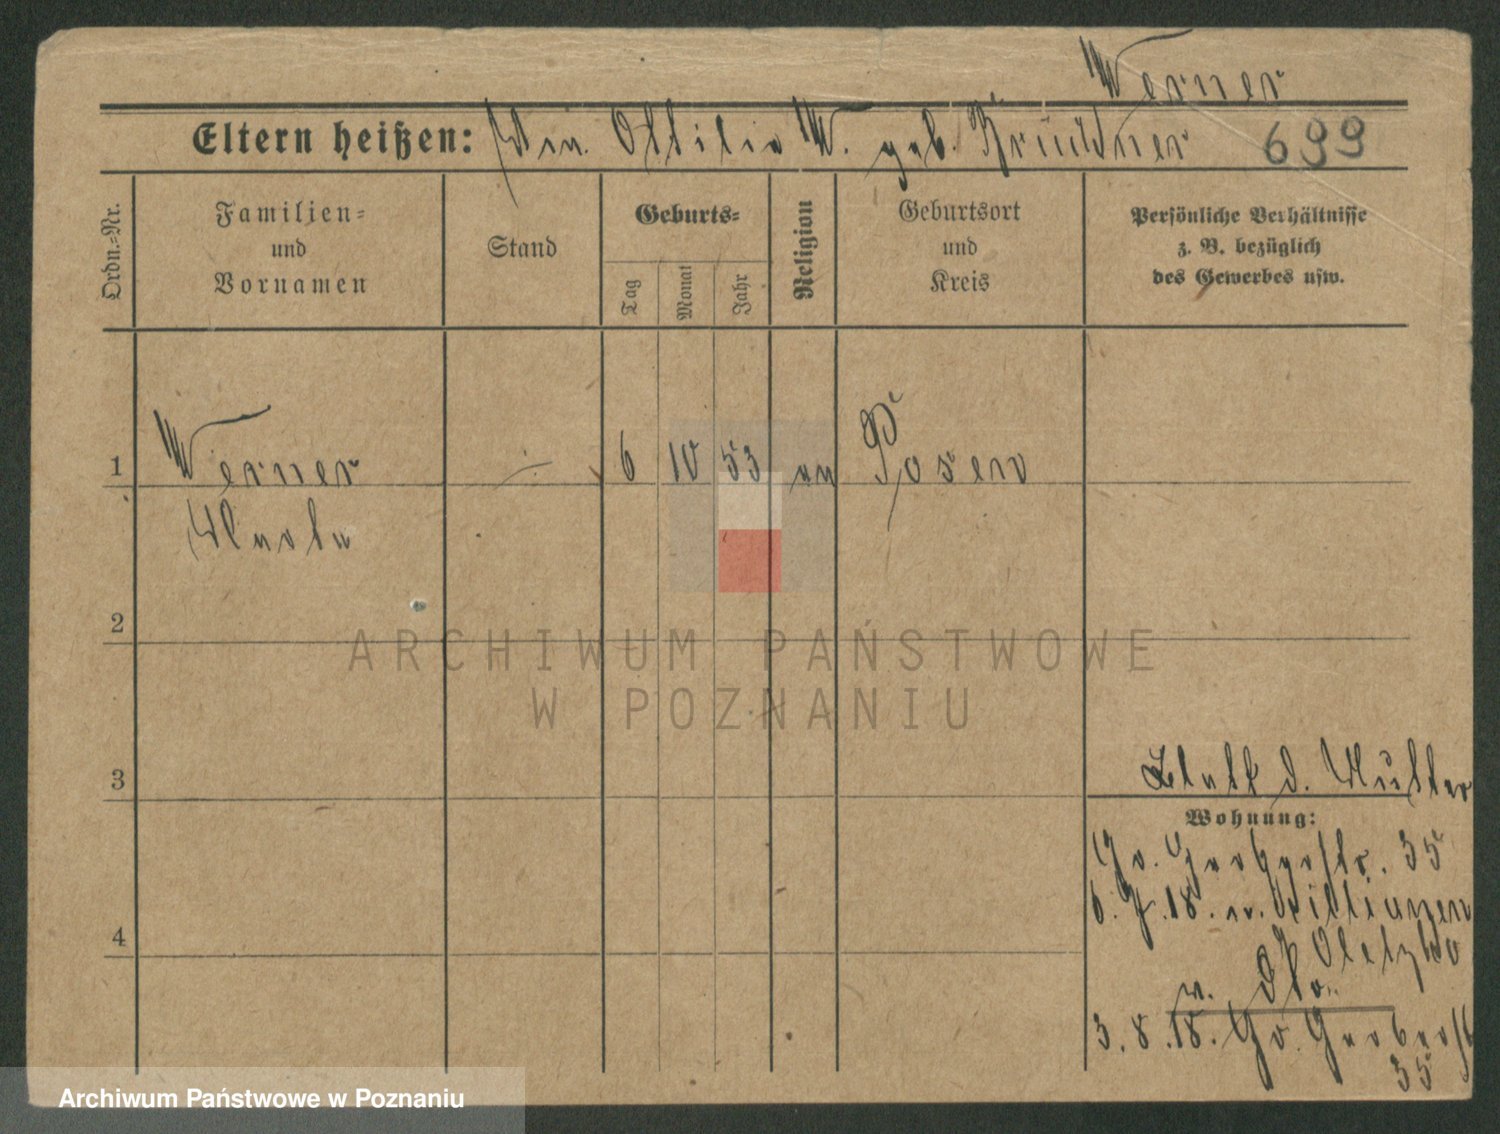 Werner
Eltern heißen: Ottilie W. geb. 699
Ordn.-Nr.
Familien-
und
Vornamen
Stand
Geburts-
Tag
Monat
Jahr
Religion
Geburtsort
und
Kreis
Persönliche Verhältnisse
z. B. bezüglich
des Gewerbes usw.
1 Werner 6 10 53 Posen
2
3
Blatt d. Mutter
Wohnung:
Go. 35
4
6. 7. 18. n.
Kr. Oletzko
v. Dto.
3. 8. 18. Go.
35
ARCHIWUM PAŃSTWOWE
W POZNANIU
Archiwum Państwowe w Poznaniu